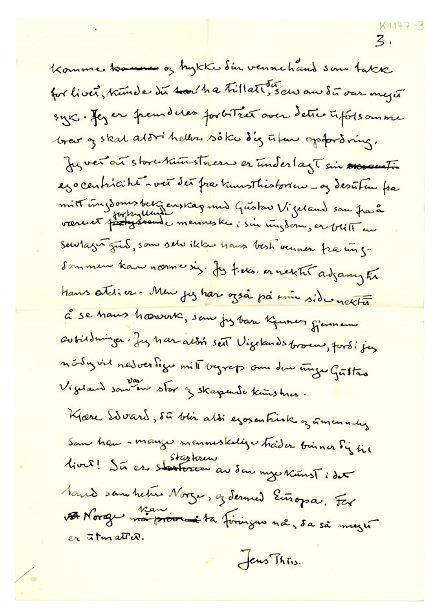 K1177-3
3.
komme komme og trykke din vennehånd som takk
for livet, kunde du ha tillatt det, selv om du var meget
syk. Jeg er fremdeles forbitret over dette ufølsomme
brev og skal aldri heller søke dig uten opfordring.
Jeg vet at store kunstnere er underlagt sin
egocentricitet – vet det fra kunsthistorien – og desuten fra
mitt ungdomsbekjenskap med Gustav Vigeland som fra å
være et fortryllende menneske i sin ungdom, er blitt en
selvlaget gud, som selv ikke hans beste venner fra ung-
dommen kan nærme sig. Jeg f.eks. er nektet adgang til
hans atelier. Men jeg har også på min side nektet
å se hans hærverk, som jeg bare kjenner gjennem
avbildninger. Jeg har aldri sett Vigelandsbroen, fordi jeg
nødig vil nedverdige mitt begrep om den unge Gustav
Vigeland som var en stor og skapende kunstner.
Kjære Edvard, du blir aldri egosentrisk og umenneskelig
som han – mange menneskelige tråder binner dig til
livet! Du er starteren av den nye kunst i det
land som heter Norge, og dermed Europa. For
Norge kan ta føringen nå, da så meget
er utmattet.
Jens Thiis.